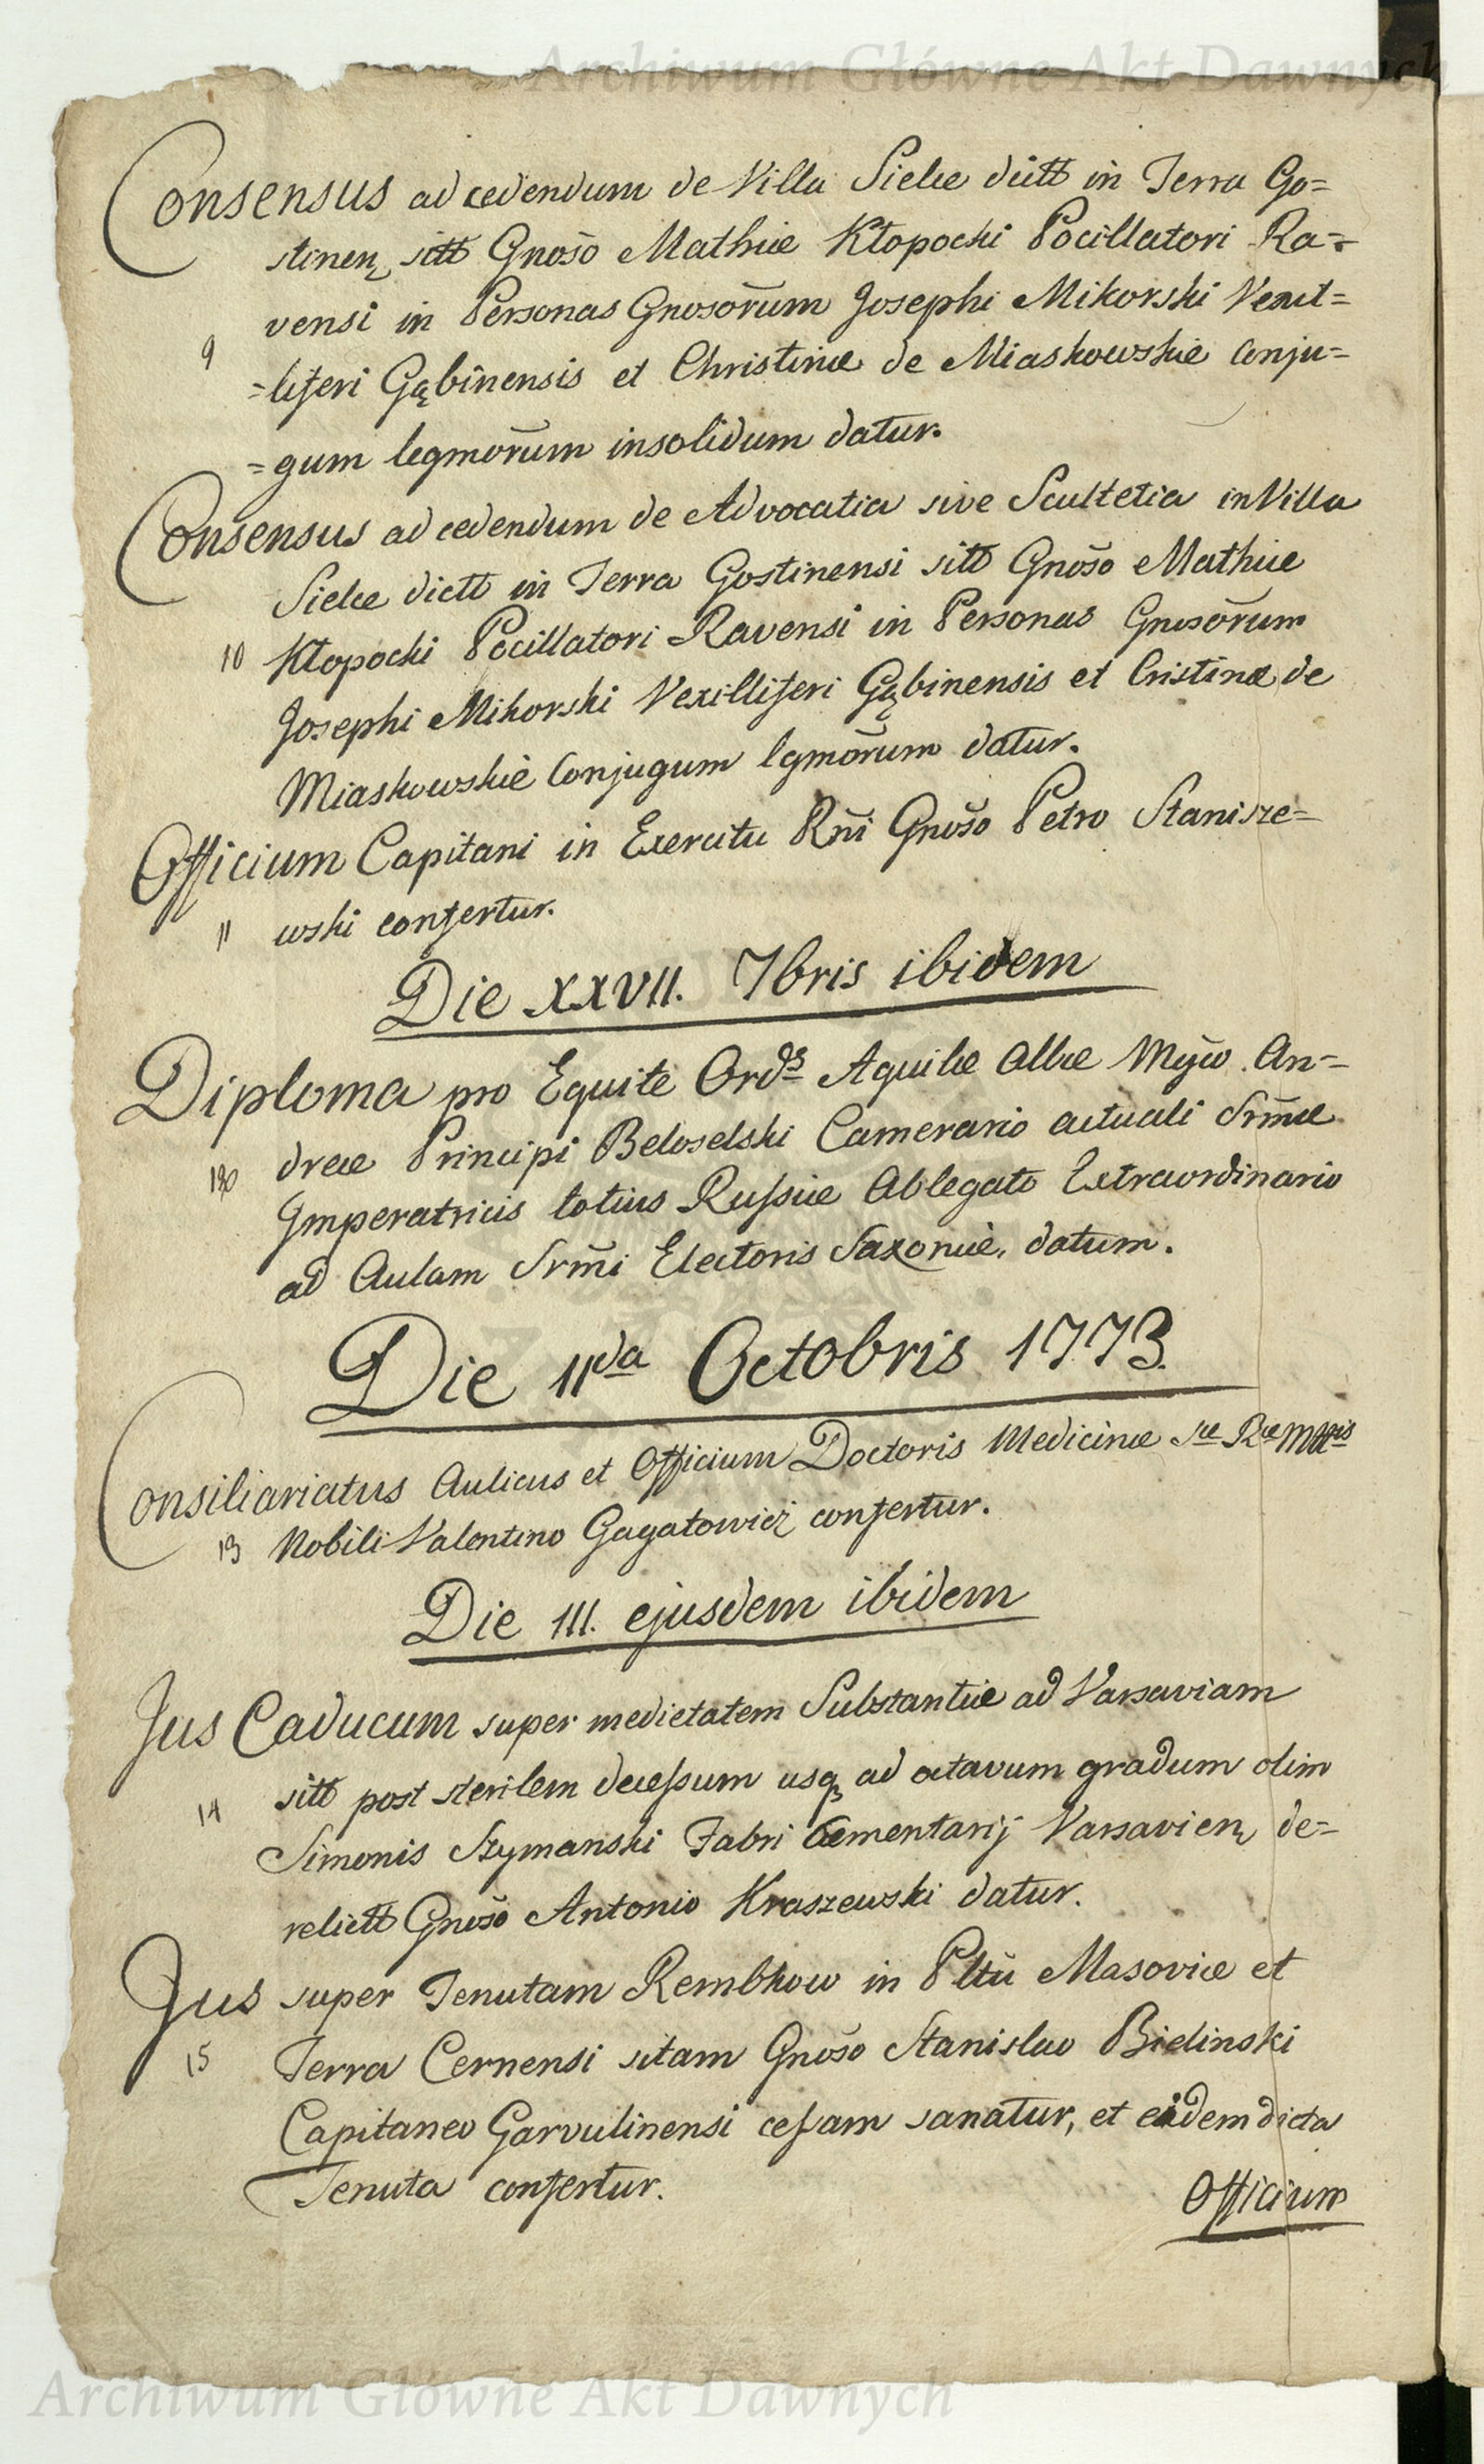 Archiwum Główne Akt Dawnych
Consensus ad cedendum de Villa Sielce dictt in Terra Go=
stinen sitt Gnoso Mathiæ Kłopocki Pocillatori Ra=
vensi in Personas Gnosorum Josephi Mikorski Vexil=
9
=liferi Gąbinensis et Christinæ de Miaskowskie Conju=
=gum legmorum insolidum datur.
Consensus ad cedendum de Advocatia sive Scultetia in Villa
Sielce dictt in Terra Gostinensi sitt Gnoso Mathiæ
10 Kłopocki Pocillatori Ravensi in Personas Gnosorum
Josephi Mikorski Vexilliferi Gąbinensis et Cristinæ de
Miaskowskie Conjugum lgmorum datur.
Officium Capitani in Exercitu Rni Gnoso Petro Stanisze=
11 wski confertur.
Die XXVII. 7bris ibidem
Diploma pro Equite Ords Aquilæ Albæ Mgco An=
dreæ Principi Beloselski Camerario actuali Srmæ
Imperatricis totius Russiæ Ablegato Extraordinario
ad Aulam Srmi Electoris Saxoniæ, datum.
Die 11da Octobris 1773.
Consiliariatus Aulicus et Officium Doctoris Medicinæ Sæ Ræ Mttis
13 Nobili Valentino Gagatowicz confertur.
Die III. ejusdem ibidem
Jus Caducum super medietatem Substantiæ ad Varsaviam
14 sitt post sterilem decessum usq ad octavum gradum olim
Simonis Szymanski Fabri Cæmentarij Varsavien de=
relictt Gnoso Antonio Kraszewski datur.
Jus super Tenutam Rembkow in Pltu Masoviæ et
15 Terra Cernensi sitam Gnoso Stanislao Bielinski
Capitaneo Garvulinensi cessam sanatur, et eidem dicta
Tenuta confertur.
Officium
Archiwum Główne Akt Dawnych